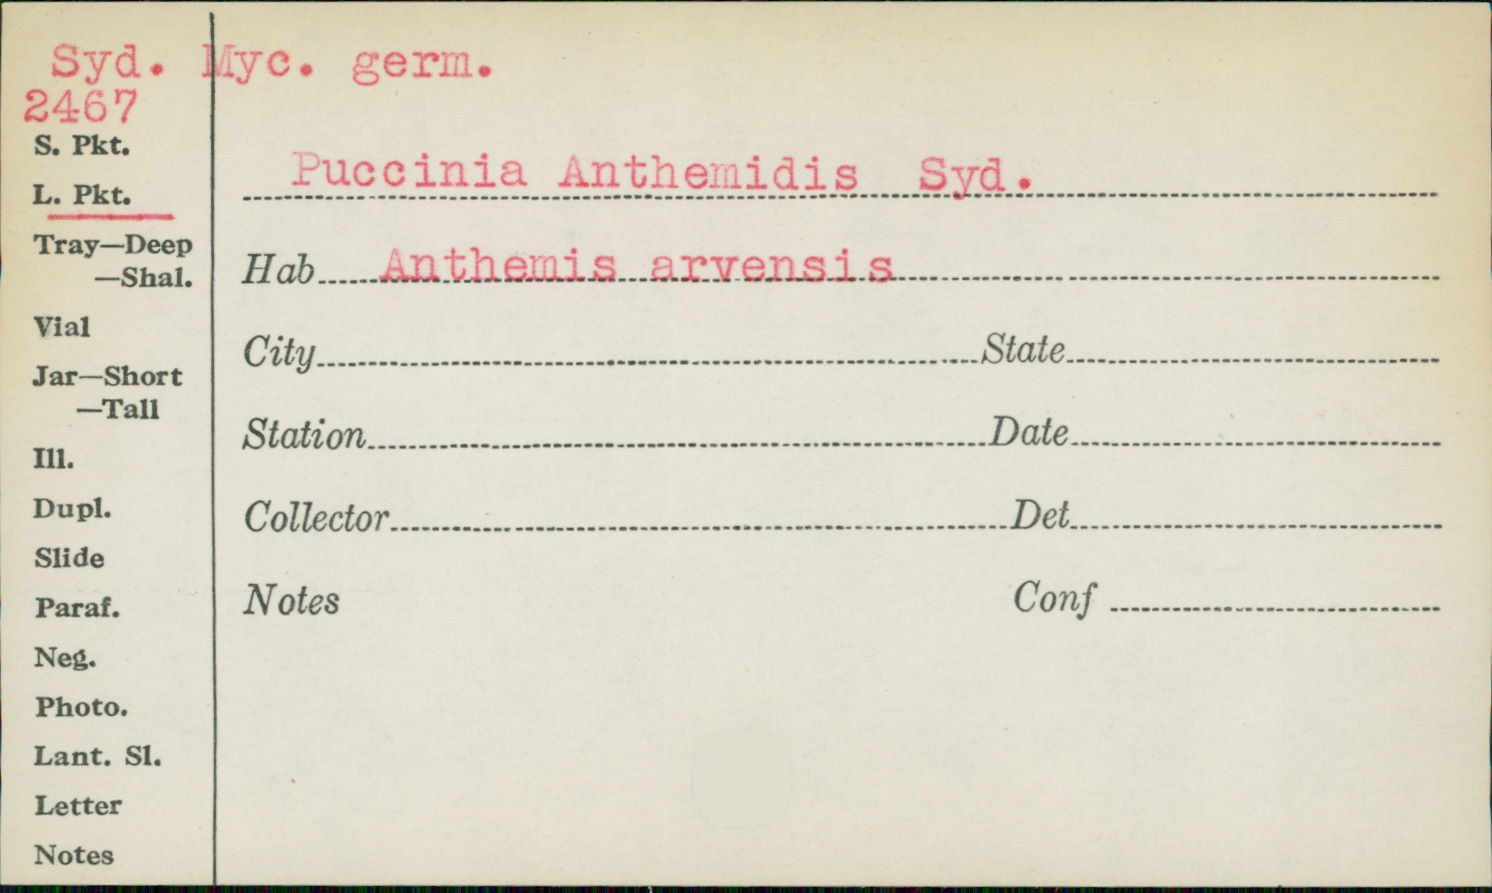 Syd. Myc. germ.
2467
S. Pkt.
Puccinia Anthemidis Syd.
L. Pkt.
Tray—Deep
—Shal.
Hab Anthemis arvensis
Vial
City State
Jar—Short
—Tall
Station Date
Ill.
Dupl.
Collector Det
Slide
Paraf.
Notes Conf
Neg.
Photo.
Lant. Sl.
Letter
Notes